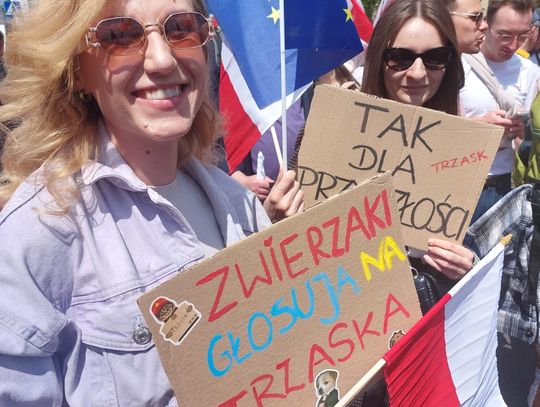 TAK
DLA
PRZYSZŁOŚCI
TRZASK
ZWIERZAKI
GŁOSUJĄ NA
TRZASKA